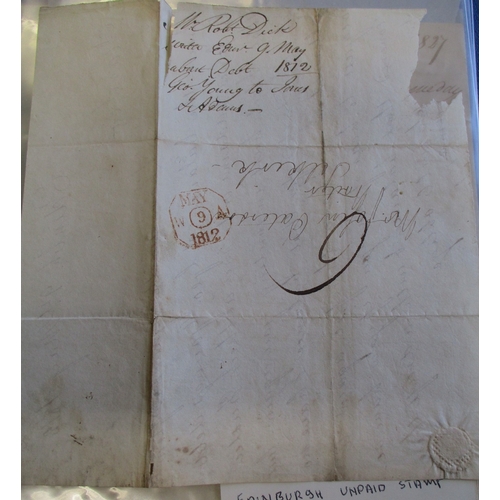 Mr Robt. Dick
writer Edinr 9. May
about Debt 1812
Geo. Young to Innes
& Adams. —
1827
MAY
N 9 A
1812
Mr John
Writer
Selkirk
6
EDINBURGH UNPAID STAMP